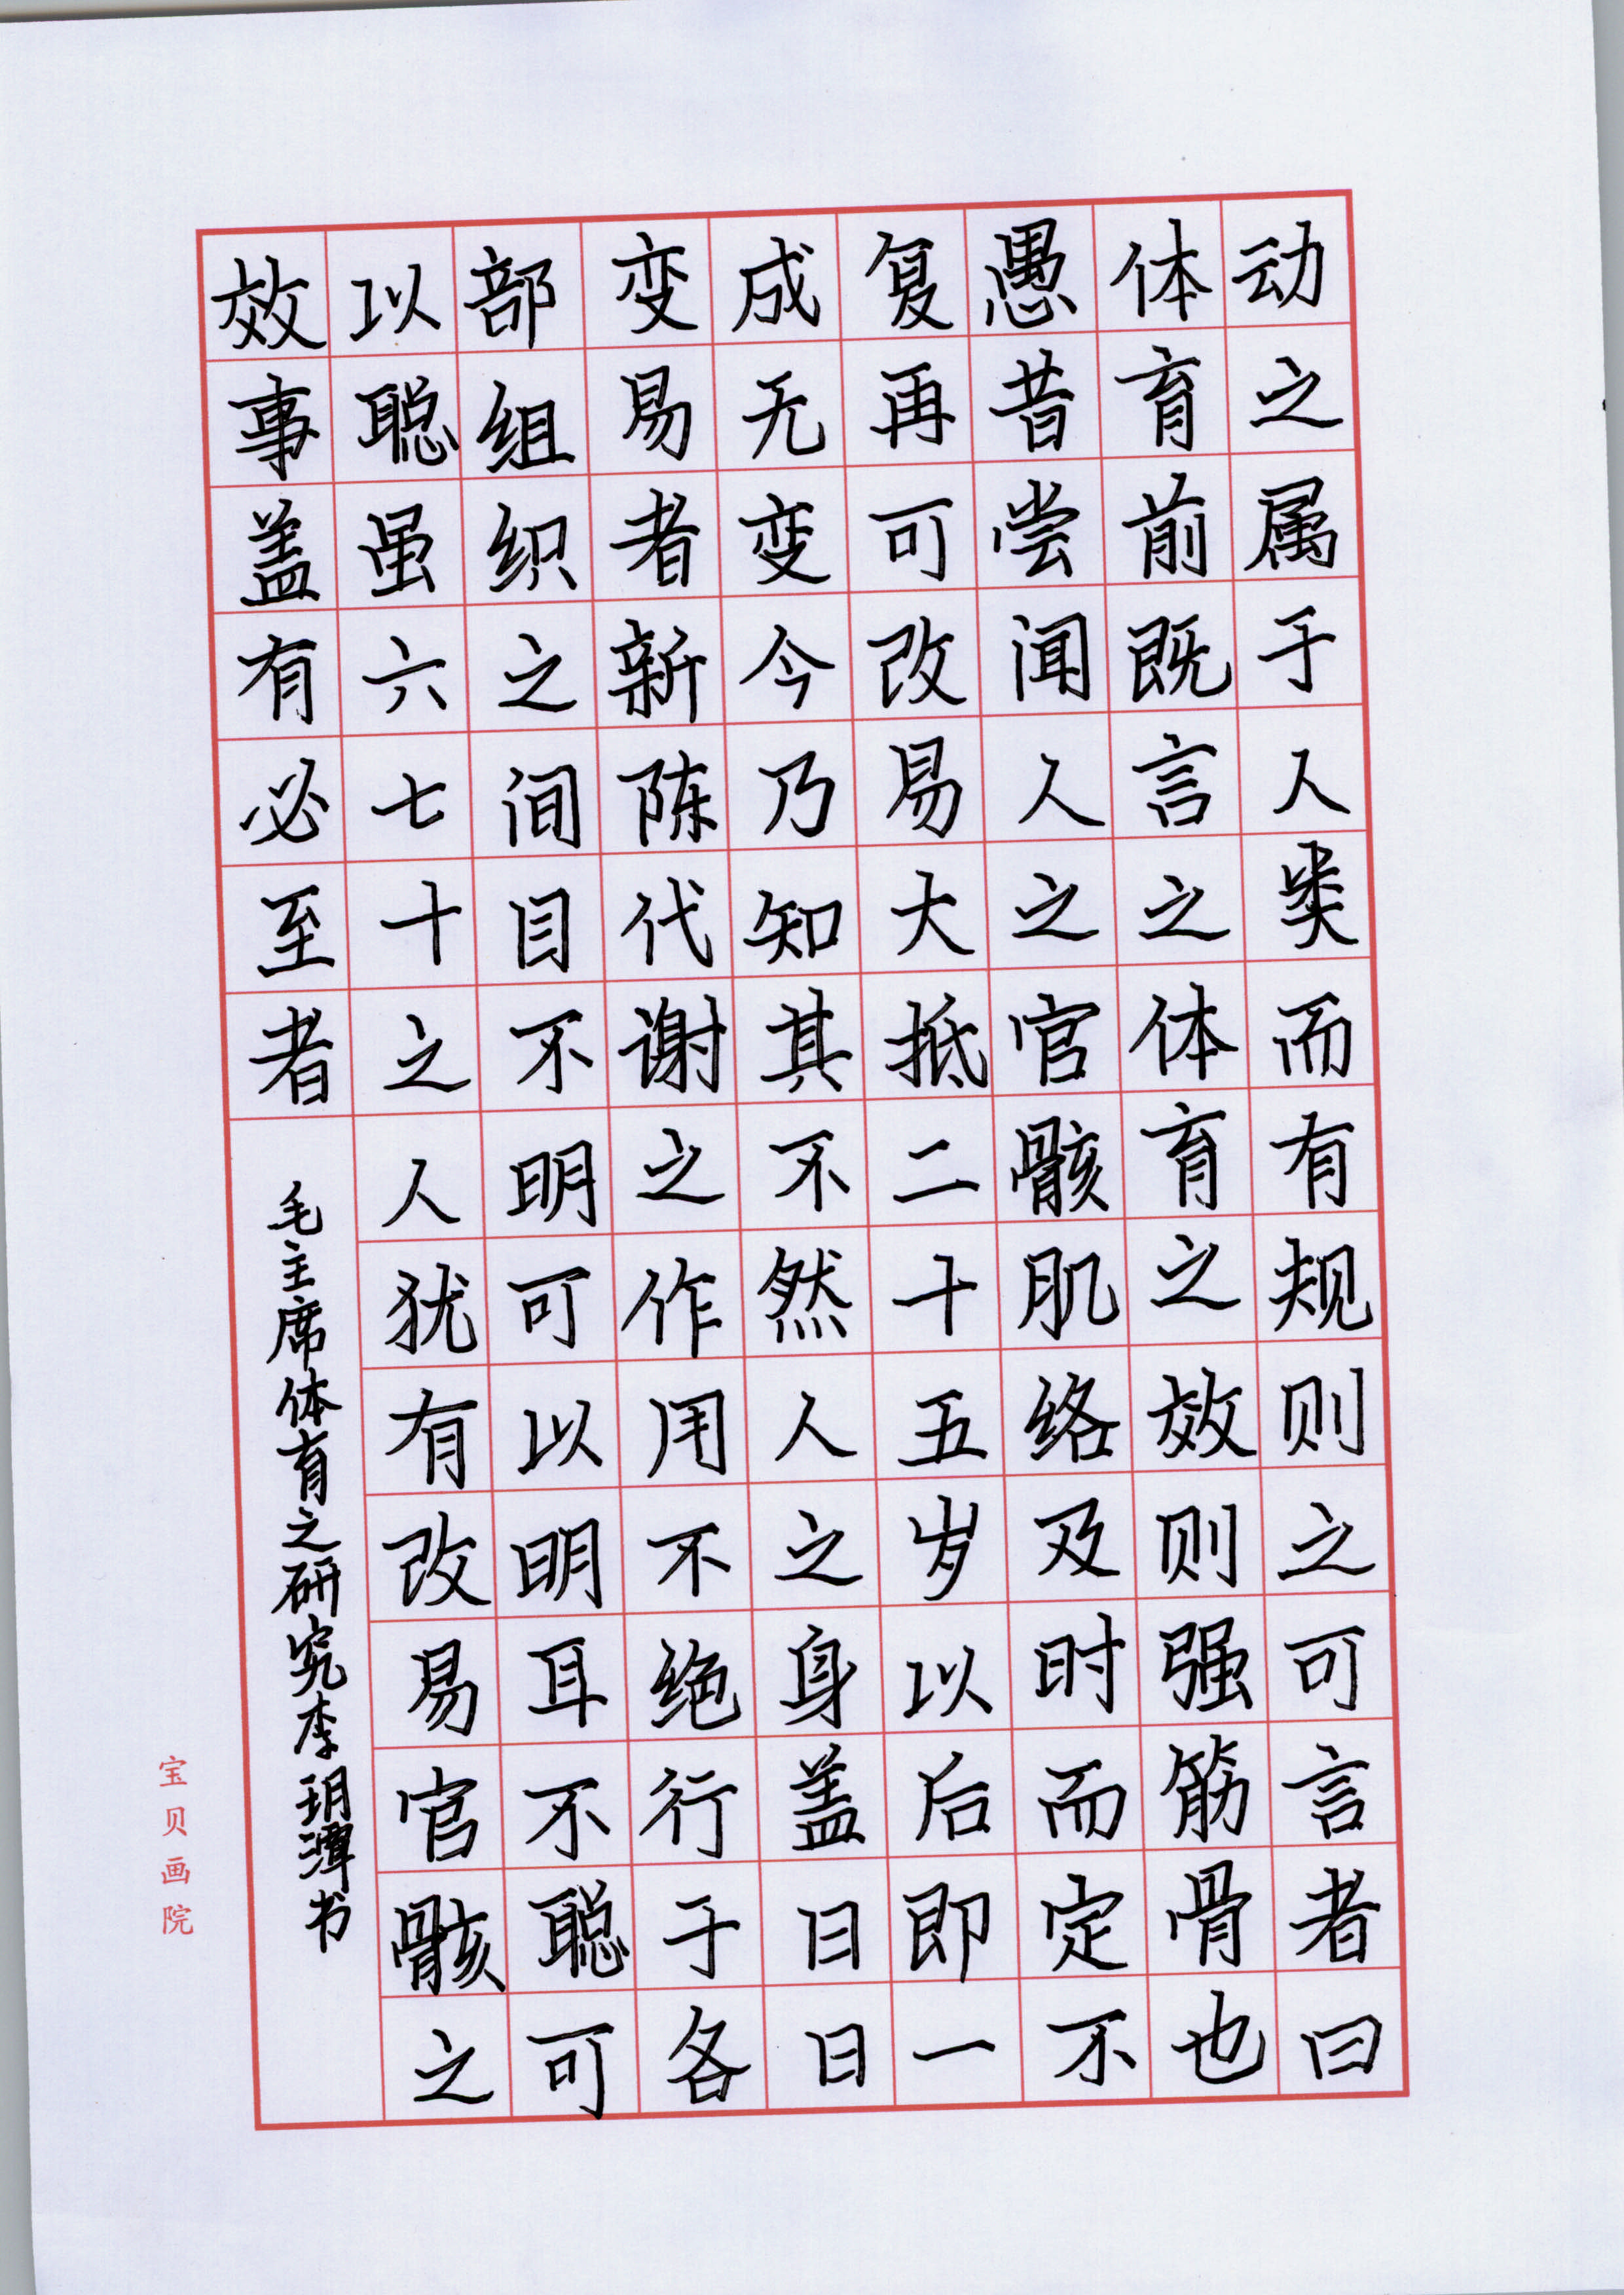 动之属于人类而有规则之可言者曰
体育前既言之体育之效则强筋骨也
愚昔尝闻人之官骸肌络及时而定不
复再可改易大抵二十五岁以后即一
成无变今乃知其不然人之身盖日日
变易者新陈代谢之作用不绝行于各
部组织之间目不明可以明耳不聪可
以聪虽六七十之人犹有改易官骸之
效事盖有必至者
毛主席体育之研究李玥潭书
宝贝画院